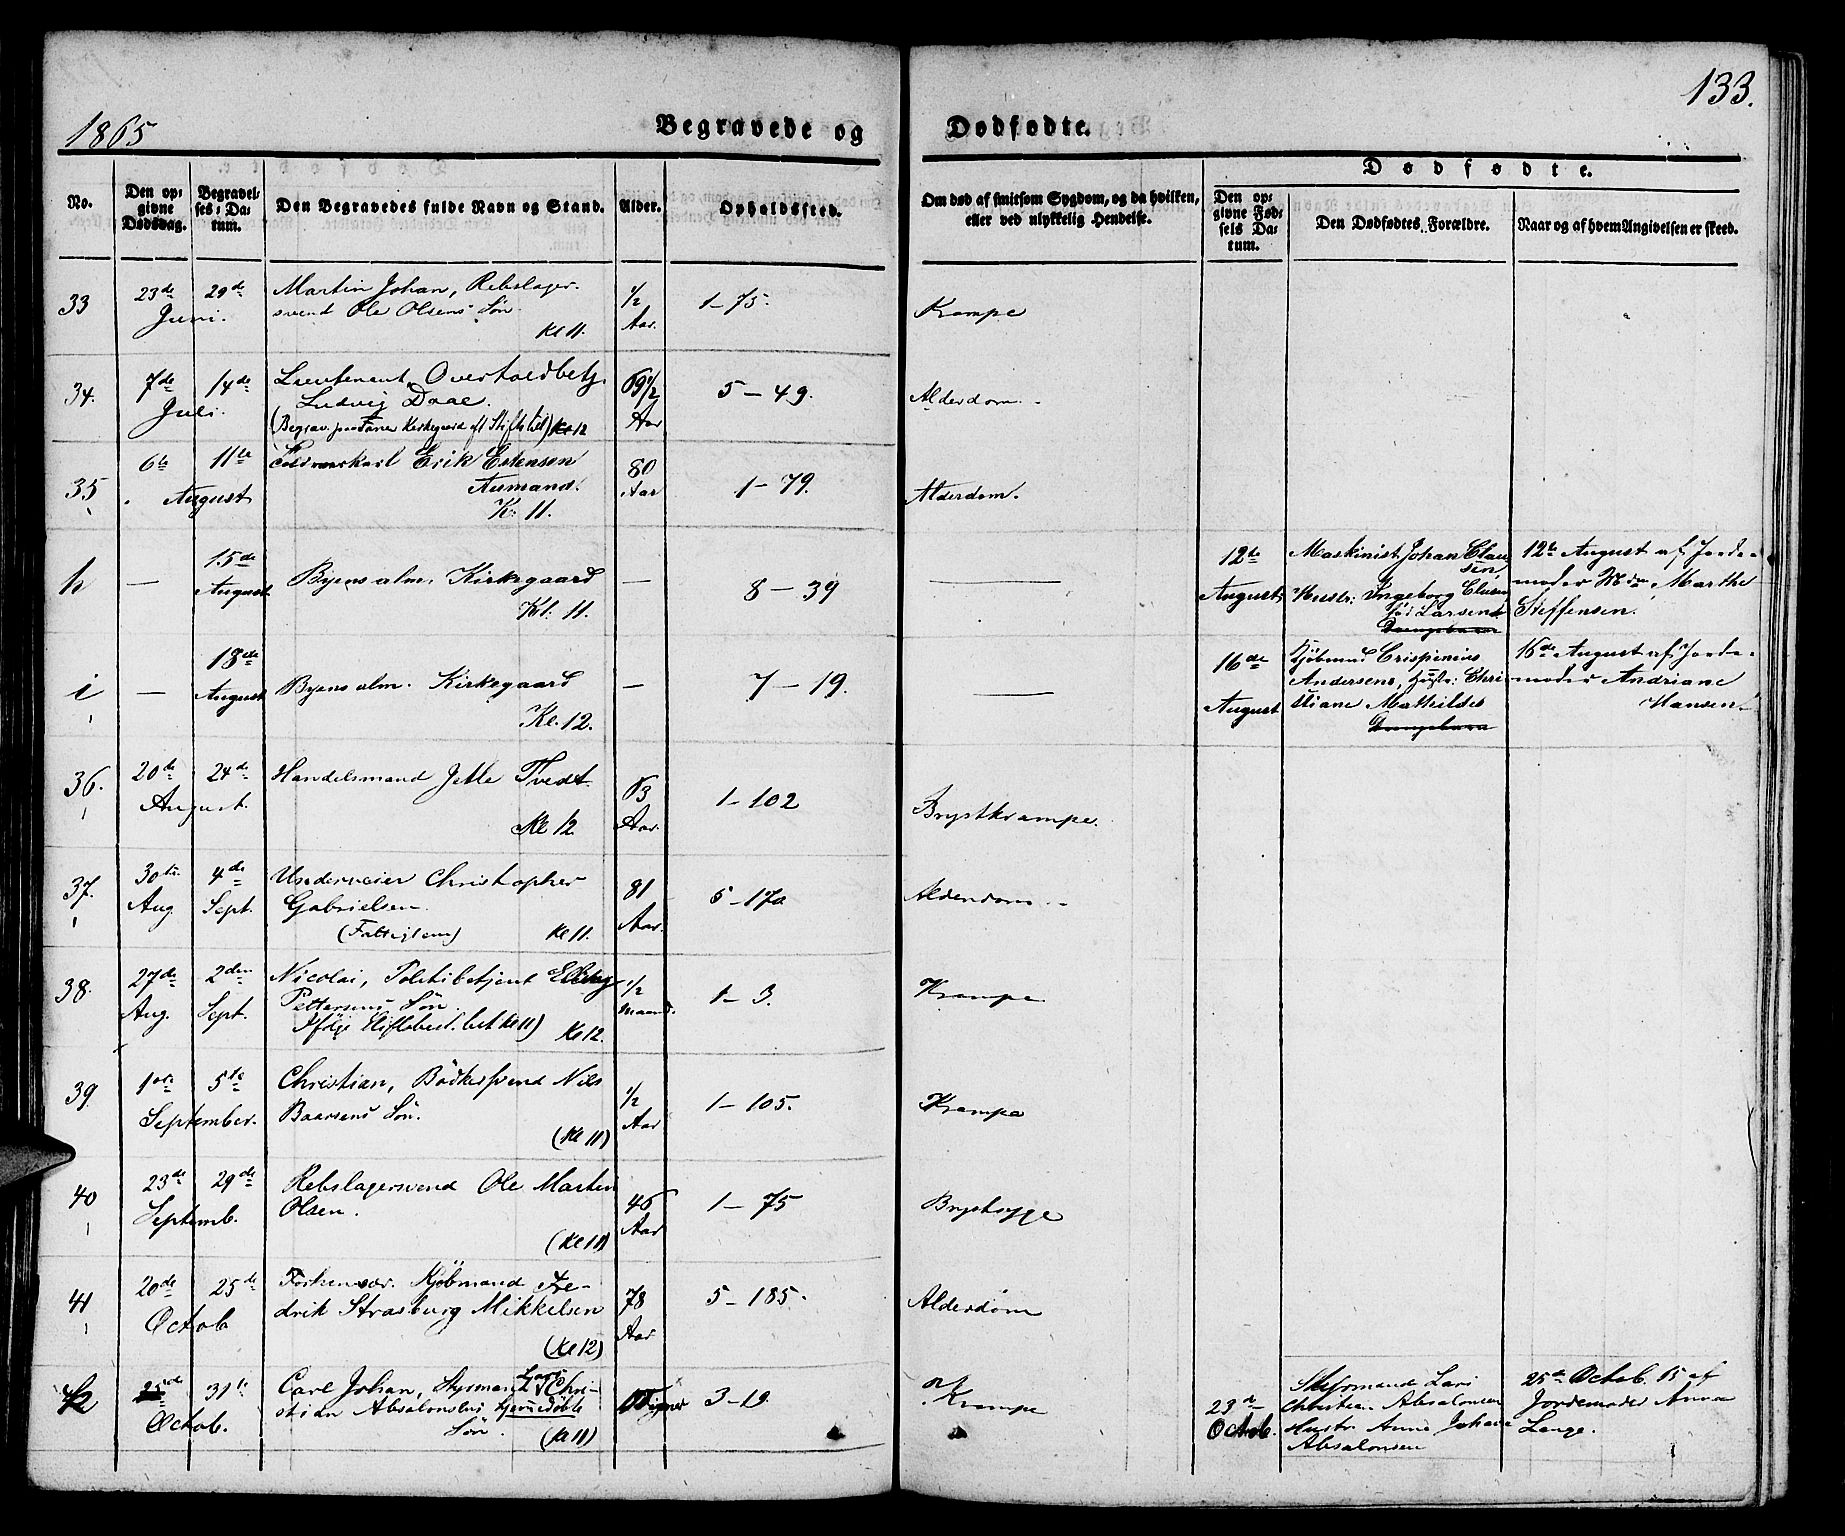 133.
1865
Begravede og Dødfødte.
Dødfødte.
No.
Den opgivne Dødsdag.
Begravelses-Datum.
Den Begravedes fulde Navn og Stand.
Alder.
Opholdssted.
Om død af smitsom Sygdom, og da hvilken, eller ved ulykkelig Hendelse.
Den opgivne Fødsels Datum.
Den Dødfødtes Forældre.
Naar og af hvem Angivelsen er skeed.
33 23de 29de Martin Johan, Rebslager- 1/2 1-75. Krampe
Juni. svend Ole Olsens Søn. Aar.
Kl 11.
34. 7de 14de Lieutenant, Overtoldbetj. 69 1/2 5-49. Alderdom.
Juli. Ludvig Daae. Aar
(Begrav. paa Fane Kirkegaard Kl 12
35 6te 11te Erik Estensen 80 1-79. Alderdom.
August Aumand. Aar
Kl. 11.
h — 15de August Byens alm. Kirkegaard — 8-39 —
Kl. 11.
12te August Maskinist Johan Clausen,
Hustr: Ingeborg Clausen
fød Larsen
Drengebarn
12te August af Jorde-
moder Mdm Marthe
Steffensen.
i — 18de August Byens alm. Kirkegaard — 7-19. —
Kl. 12.
16de August Kjøbmand Crispinius
Andersens, Hustr: Chri-
stiane Mathildes
Drengebarn
16de August af Jorde-
moder Andriane
Hansen.
36. 20de 24de Handelsmand Jetle Tvedt 63 1-102 Brystkrampe.
August. Aar.
Kl 12
37. 30te 4de Underveier Christopher 81 5-170 Alderdom.
Aug. Sept. Gabrielsen. Aar.
(Fattiglem) Kl 11.
38. 27de 2den Nicolai, Politibetjent 1/2 1-3. Krampe
Aug. Sept. Pettersens Søn. maaned.
Kl 11) Kl 12.
39. 1ste 5te Christian, Bødkersvend Nils 1/2 1-105. Krampe
September. Baarsens Søn. Aar
(Kl 11)
40 23de 29de Rebslagersvend Ole Martin 46 1-75 Brystsyge
Septemb. Olsen. Aar
(Kl 11)
41 20de 25de Forhenvær. Kjøbmand Fre- 78 5-185. Alderdom
Octob drik Strasburg Mikkelsen Aar
(Kl 12)
42 25de 31te Carl Johan, Styrmand Lars Chri- 3-19. Krampe
Octob. stian Absalonsens hjemmedøbte
Søn. (Kl 11)
23de Octob. Styrmand Lars
Christian Absalonsen
Hustr. Anne Johane
Absalonsen
25de Octob. 65 af
Jordemoder Anna
Lange.